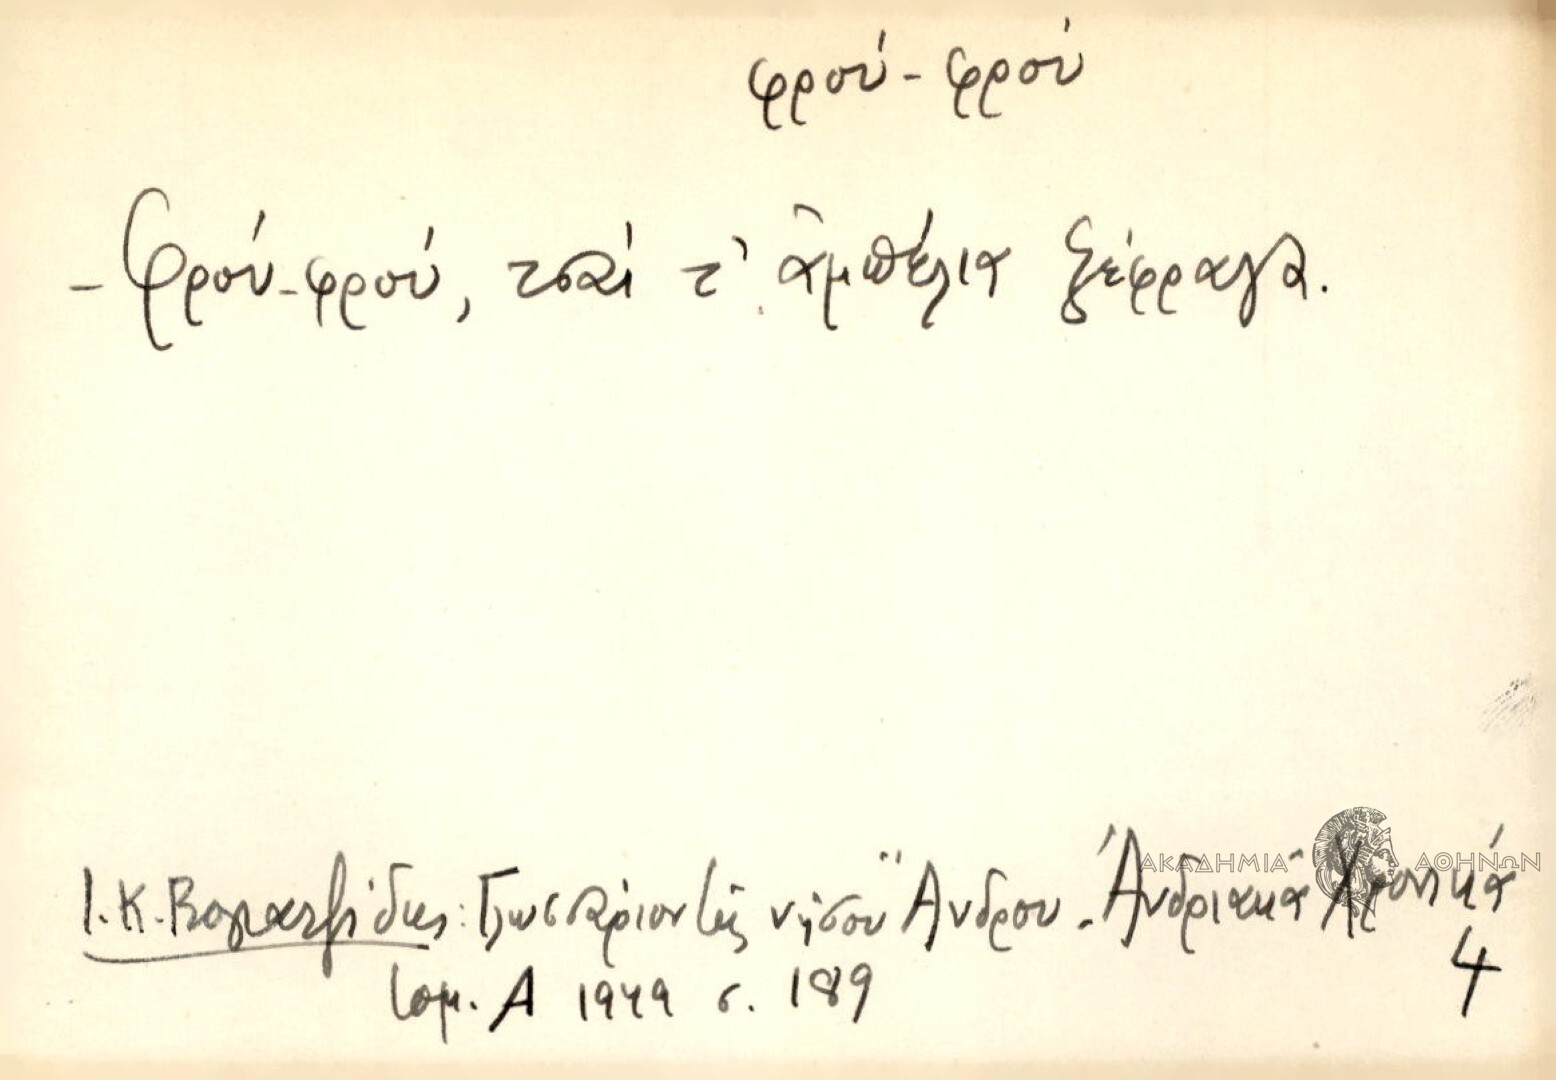 φρού - φρού
- Φρού-φρού, τσαί τ' ἀμπέλια ξέφραγα.
ΑΚΑΔΗΜΙΑ ΑΘΗΝΩΝ
Ι. Κ. Βογιατζίδης: Γλωσσάριον τῆς νήσου Ἄνδρου - Ἀνδριακὰ Χρονικά 4
τομ. Α 1949 σ. 189